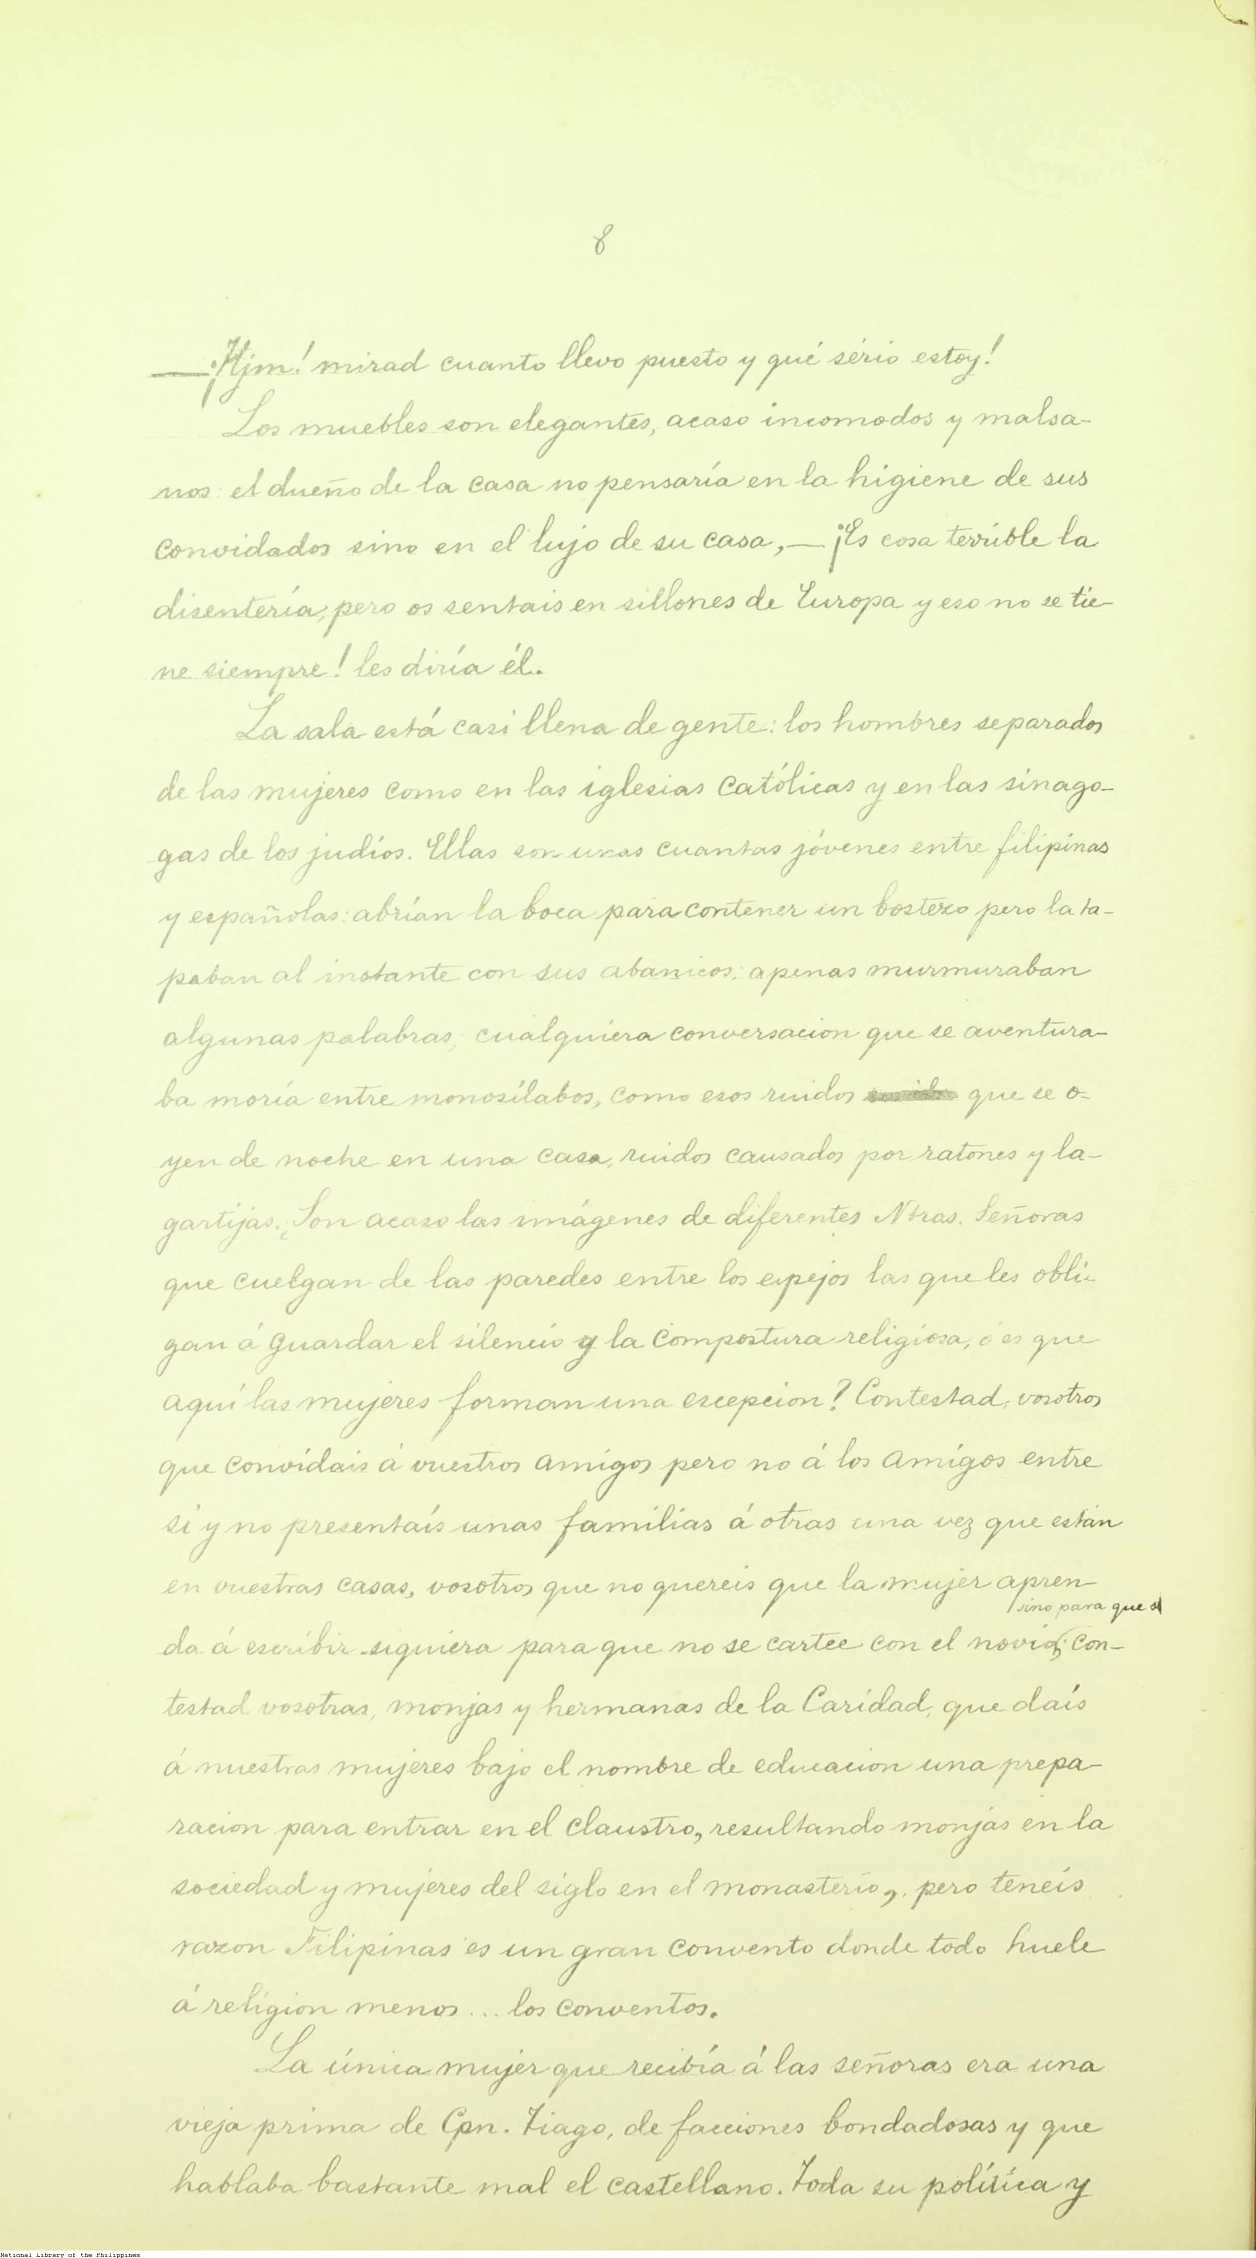 8
—¡Hjm! mirad cuanto llevo puesto y qué sério estoy!
Los muebles son elegantes, acaso incomodos y malsa-
nos: el dueño de la casa no pensaría en la higiene de sus
convidados sino en el lujo de su casa,—¡Es cosa terrible la
disentería, pero os sentais en sillones de Europa y eso no se tie-
ne siempre! les diría él.
La sala está casi llena de gente: los hombres separados
de las mujeres como en las iglesias católicas y en las sinago-
gas de los judíos. Ellas son unas cuantas jóvenes entre filipinas
y españolas: abrían la boca para contener un bostezo pero la ta-
paban al instante con sus abanicos; apenas murmuraban
algunas palabras; cualquiera conversacion que se aventura-
ba moría entre monosílabos, como esos ruidos que se o-
yen de noche en una casa, ruidos causados por ratones y la-
gartijas. ¿Son acaso las imágenes de diferentes Ntras. Señoras
que cuelgan de las paredes entre los espejos las que les obli-
gan á guardar el silencio y la compostura religiosa, ó es que
aquí las mujeres forman una escepcion? Contestad, vosotros
que convidais á vuestros amigos pero no á los amigos entre
si y no presentaís unas familias á otras una vez que están
en vuestras casas, vosotros que no quereis que la mujer apren-
sino para que
da á escribir siquiera para que no se cartee con el novio; con-
testad vosotras, monjas y hermanas de la Caridad, que daís
á nuestras mujeres bajo el nombre de educacion una prepa-
racion para entrar en el claustro, resultando monjas en la
sociedad y mujeres del siglo en el monasterio, pero teneis
razon Filipinas es un gran convento donde todo huele
á religion menos... los conventos.
La única mujer que recibía á las señoras era una
vieja prima de Cpn. Tiago, de facciones bondadosas y que
hablaba bastante mal el castellano. Toda su política y
National Library of the Philippines